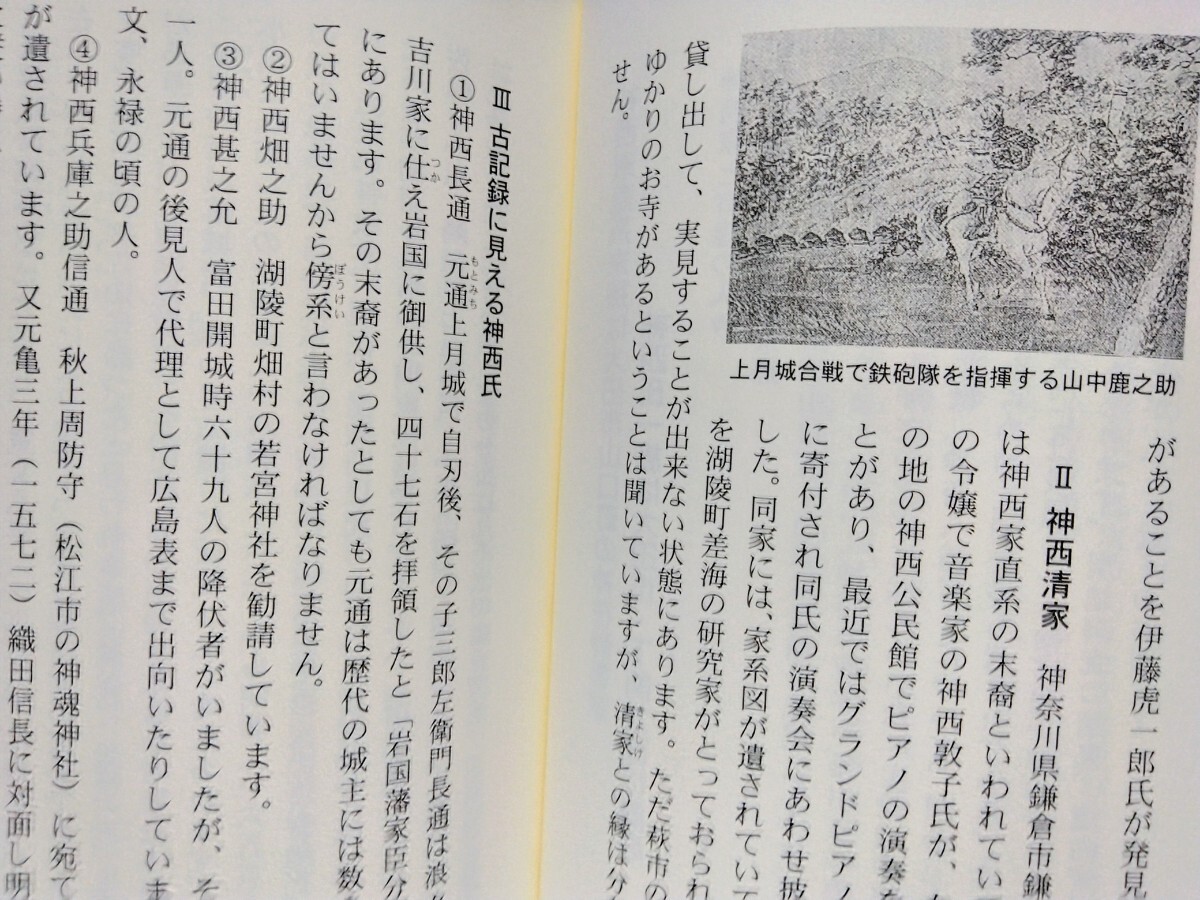 上月城合戦で鉄砲隊を指揮する山中鹿之助
があることを伊藤虎一郎氏が発見
Ⅱ 神西清家 神奈川県鎌倉市鎌
は神西家直系の末裔といわれてい
の令嬢で音楽家の神西敦子氏が、
の地の神西公民館でピアノの演奏を
とがあり、最近ではグランドピアノ
に寄付され同氏の演奏会にあわせ披
した。同家には、家系図が遺されてい
を湖陵町差海の研究家がとっておられ
貸し出して、実見することが出来ない状態にあります。ただ萩市の
ゆかりのお寺があるということは聞いていますが、清家との縁は分
きよしげ
せん。
Ⅲ 古記録に見える神西氏
①神西長通 元通上月城で自刃後、その子三郎左衛門長通は浪
もとみち
吉川家に仕え岩国に御供し、四十七石を拝領したと「岩国藩家臣分
つか
にあります。その末裔があったとしても元通は歴代の城主には数
てはいませんから傍系と言わなければなりません。
ぼうけい
②神西畑之助 湖陵町畑村の若宮神社を勧請しています。
③神西甚之允 富田開城時六十九人の降伏者がいましたが、そ
一人。元通の後見人で代理として広島表まで出向いたりしていま
文、永禄の頃の人。
④神西兵庫之助信通 秋上周防守（松江市の神魂神社）に宛て
が遺されています。又元亀三年（一五七二）織田信長に対面し明